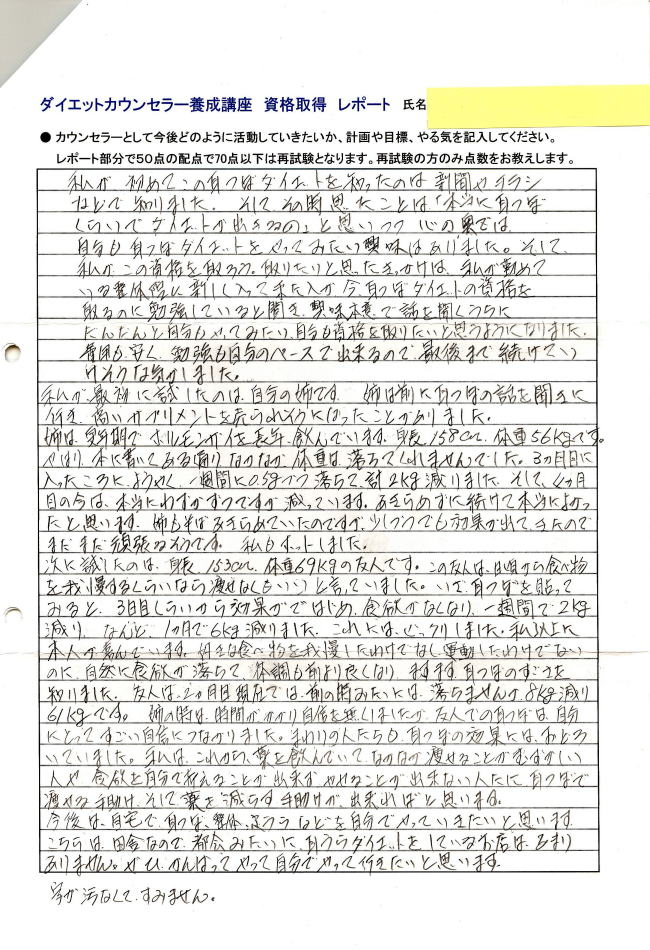 ダイエットカウンセラー養成講座 資格取得 レポート 氏名
● カウンセラーとして今後どのように活動していきたいか、計画や目標、やる気を記入してください。
レポート部分で50点の配点で70点以下は再試験となります。再試験の方のみ点数をお教えします。
私が 初めてこの耳つぼダイエットを知ったのは 新聞やチラシ
などで 知りました。そして、その時思ったことは「本当に耳つぼ
くらいで ダイエットが出きるの」と思いつつ 心の奥では
自分も耳つぼダイエットをやってみたい興味はありました。そして、
私がこの資格を取ろう、取りたいと思ったきっかけは、私が勤めて
いる整体院に新しく入って来た人が今、耳つぼダイエットの資格を
取るのに勉強していると聞き、興味本意で話を聞くうちに
だんだんと自分もやってみたい、自分も資格を取りたいと思うようになりました。
費用も安く、勉強も自分のペースで出来るので、最後まで続けてい
けそうな気がしました。
私が最初に試したのは、自分の姉です。姉は前に耳つぼの話を聞きに
行き、高いサプリメントを売られそうになったことがありました。
姉は、更年期でホルモン剤を長年、飲んでいます。身長158cm、体重56kgです。
やはり、本に書いてある通り、なかなか体重は、落ちてくれませんでした。3ヵ月目に
入ったころに、ようやく、一週間に0.5kgづつ落ちて、計2kg減りました。そして、4ヶ月
目の今は、本当にわずかずつですが、減っています。あきらめずに続けて本当によかっ
たと思います。姉も半ばあきらめていたのですが、少しづつでも効果が出て、きたので
まだまだ頑張るそうです。私もホットしました。
次に試したのは、身長153cm、体重69kgの友人です。この友人は、日頃から食べ物
を我慢するくらいなら痩せなくもいい)と言っていました。いざ、耳つぼを貼って
みると、3日目くらいから効果がではじめ、食欲がなくなり、一週間で2kg
減り、なんと、1ヵ月で6kg減りました。これには、びっくりしました。私以上に
本人が喜んでいます。好きな食べ物を我慢したわけでなし、運動したわけでない
のに、自然に食欲が落ちて、体調も前より良くなり、ますます、耳つぼのすごさを
知りました。友人は、2ヵ月目現在では、前の時みたいには、落ちませんが、8kg減り
61kgです。姉の時は、時間がかかり自信を無くしましたが、友人での耳つぼは、自分
にとってすごい自信につながりました。まわりの人たちも、耳つぼの効果には、おどろ
いていました。私は、これから、薬を飲んでいて、なかなか痩せることがむずかしい
人や 食欲を自分で抑えることが出来ず、やせることが出来ない人たちに、耳つぼで
痩せる手助け、そして薬を減らす手助けが、出来ればと思います。
今後は、自宅で、耳つぼ、整体、足ウラなどを自分でやっていきたいと思います。
こちらは、田舎なので、都会みたいに、耳つぼダイエットをしているお店は、あまり
ありません。ぜひ、がんばってやって自分でやって行きたいと思います。
字が汚なくて、すみません。